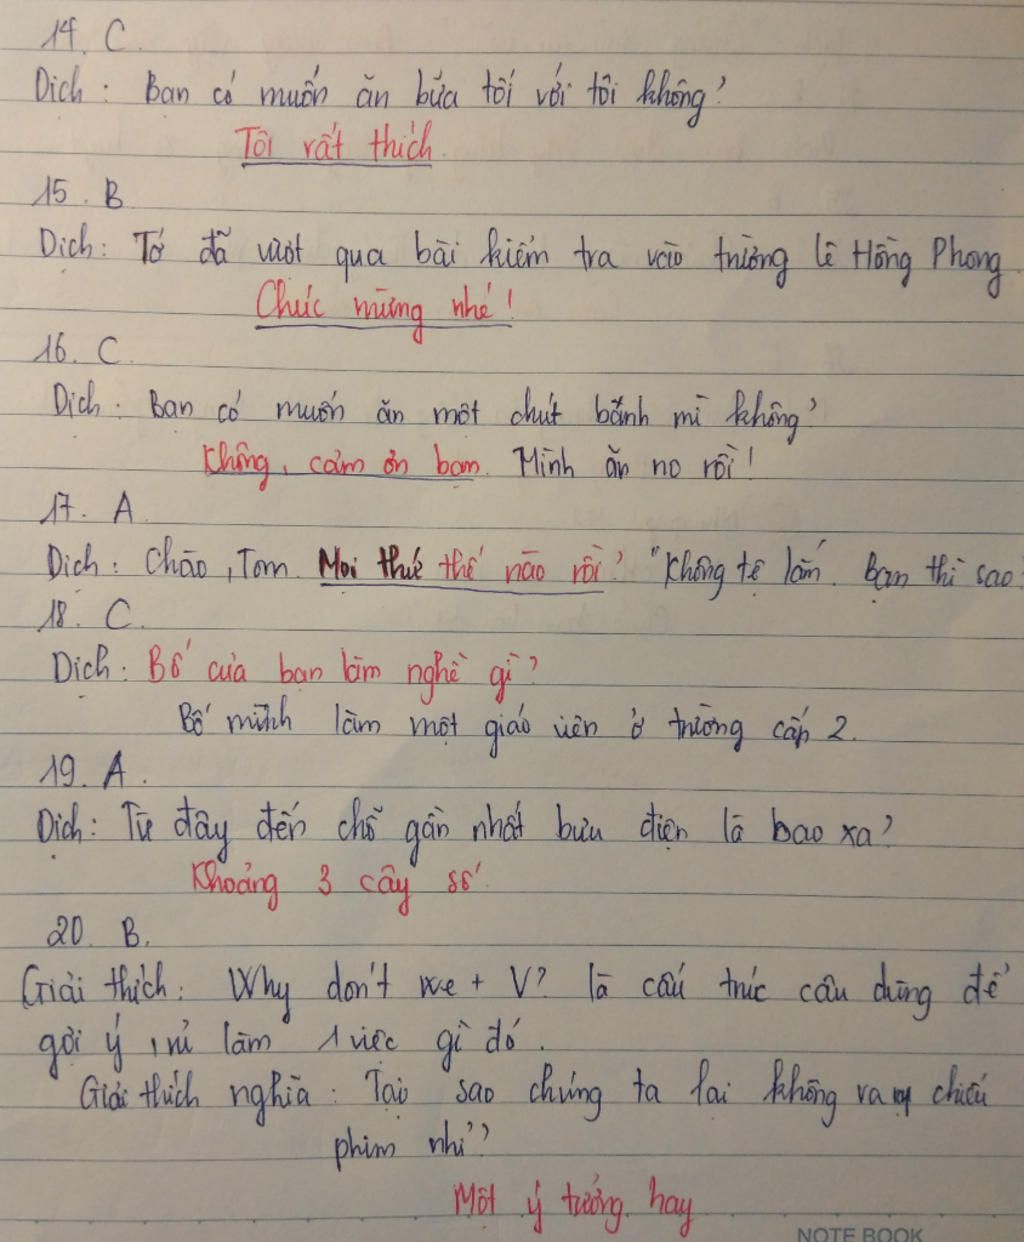 14. C.
Dịch: Bạn có muốn ăn bữa tối với tôi không?
Tôi rất thích.
15. B
Dịch: Tớ đã vượt qua bài kiểm tra vào trường Lê Hồng Phong
Chúc mừng nhé!
16. C.
Dịch: Bạn có muốn ăn một chút bánh mì không?
Không, cảm ơn bạn. Mình ăn no rồi!
17. A.
Dịch: Chào, Tom. Mọi thứ thế nào rồi? "Không tệ lắm. Bạn thì sao
18. C.
Dịch: Bố của bạn làm nghề gì?
Bố mình làm một giáo viên ở trường cấp 2.
19. A.
Dịch: Từ đây đến chỗ gần nhất bưu điện là bao xa?
Khoảng 3 cây số
20. B.
Giải thích: Why don't we + V? là cấu trúc câu dùng để
gợi ý, rủ làm 1 việc gì đó.
Giải thích nghĩa: Tại sao chúng ta lại không ra chiếu
phim nhỉ?
Một ý tưởng hay
NOTE BOOK